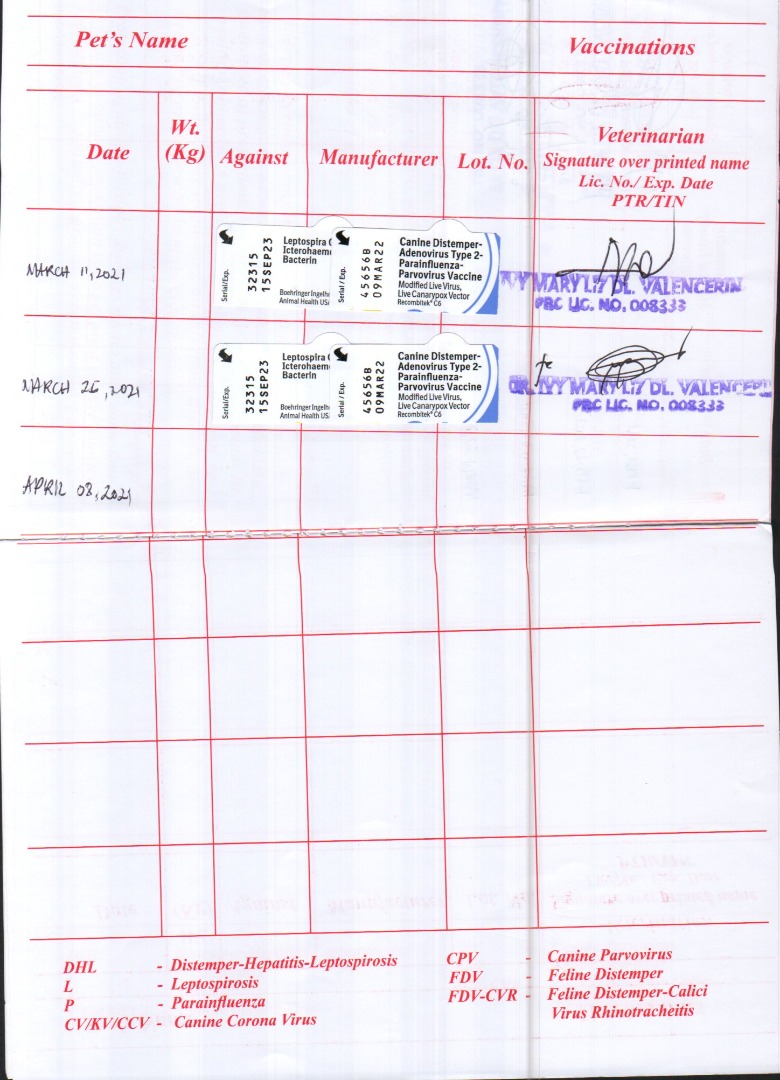 Pet's Name Vaccinations
Date
Wt. (Kg)
Against
Manufacturer
Lot. No.
Veterinarian
Signature over printed name
Lic. No./ Exp. Date
PTR/TIN
MARCH 11, 2021
Serial/Exp.
32315
15SEP23
Leptospira C
Icterohaem
Bacterin
Boehringer Ingelh
Animal Health USA
Serial / Exp.
45656B
09MAR22
Canine Distemper-
Adenovirus Type 2-
Parainfluenza-
Parvovirus Vaccine
Modified Live Virus,
Live Canarypox Vector
Recombitek® C6
IVY MARY LIZ DL. VALENCERIN
PRC LIC. NO. 008333
MARCH 25, 2021
Serial/Exp.
32315
15SEP23
Leptospira C
Icterohaem
Bacterin
Boehringer Ingelh
Animal Health US
Serial / Exp.
45656B
09MAR22
Canine Distemper-
Adenovirus Type 2-
Parainfluenza-
Parvovirus Vaccine
Modified Live Virus,
Live Canarypox Vector
Recombitek® C6
DR. IVY MARY LIZ DL. VALENCERIN
PRC LIC. NO. 008333
APRIL 08, 2021
DHL - Distemper-Hepatitis-Leptospirosis
L - Leptospirosis
P - Parainfluenza
CV/KV/CCV - Canine Corona Virus
CPV - Canine Parvovirus
FDV - Feline Distemper
FDV-CVR - Feline Distemper-Calici
Virus Rhinotracheitis